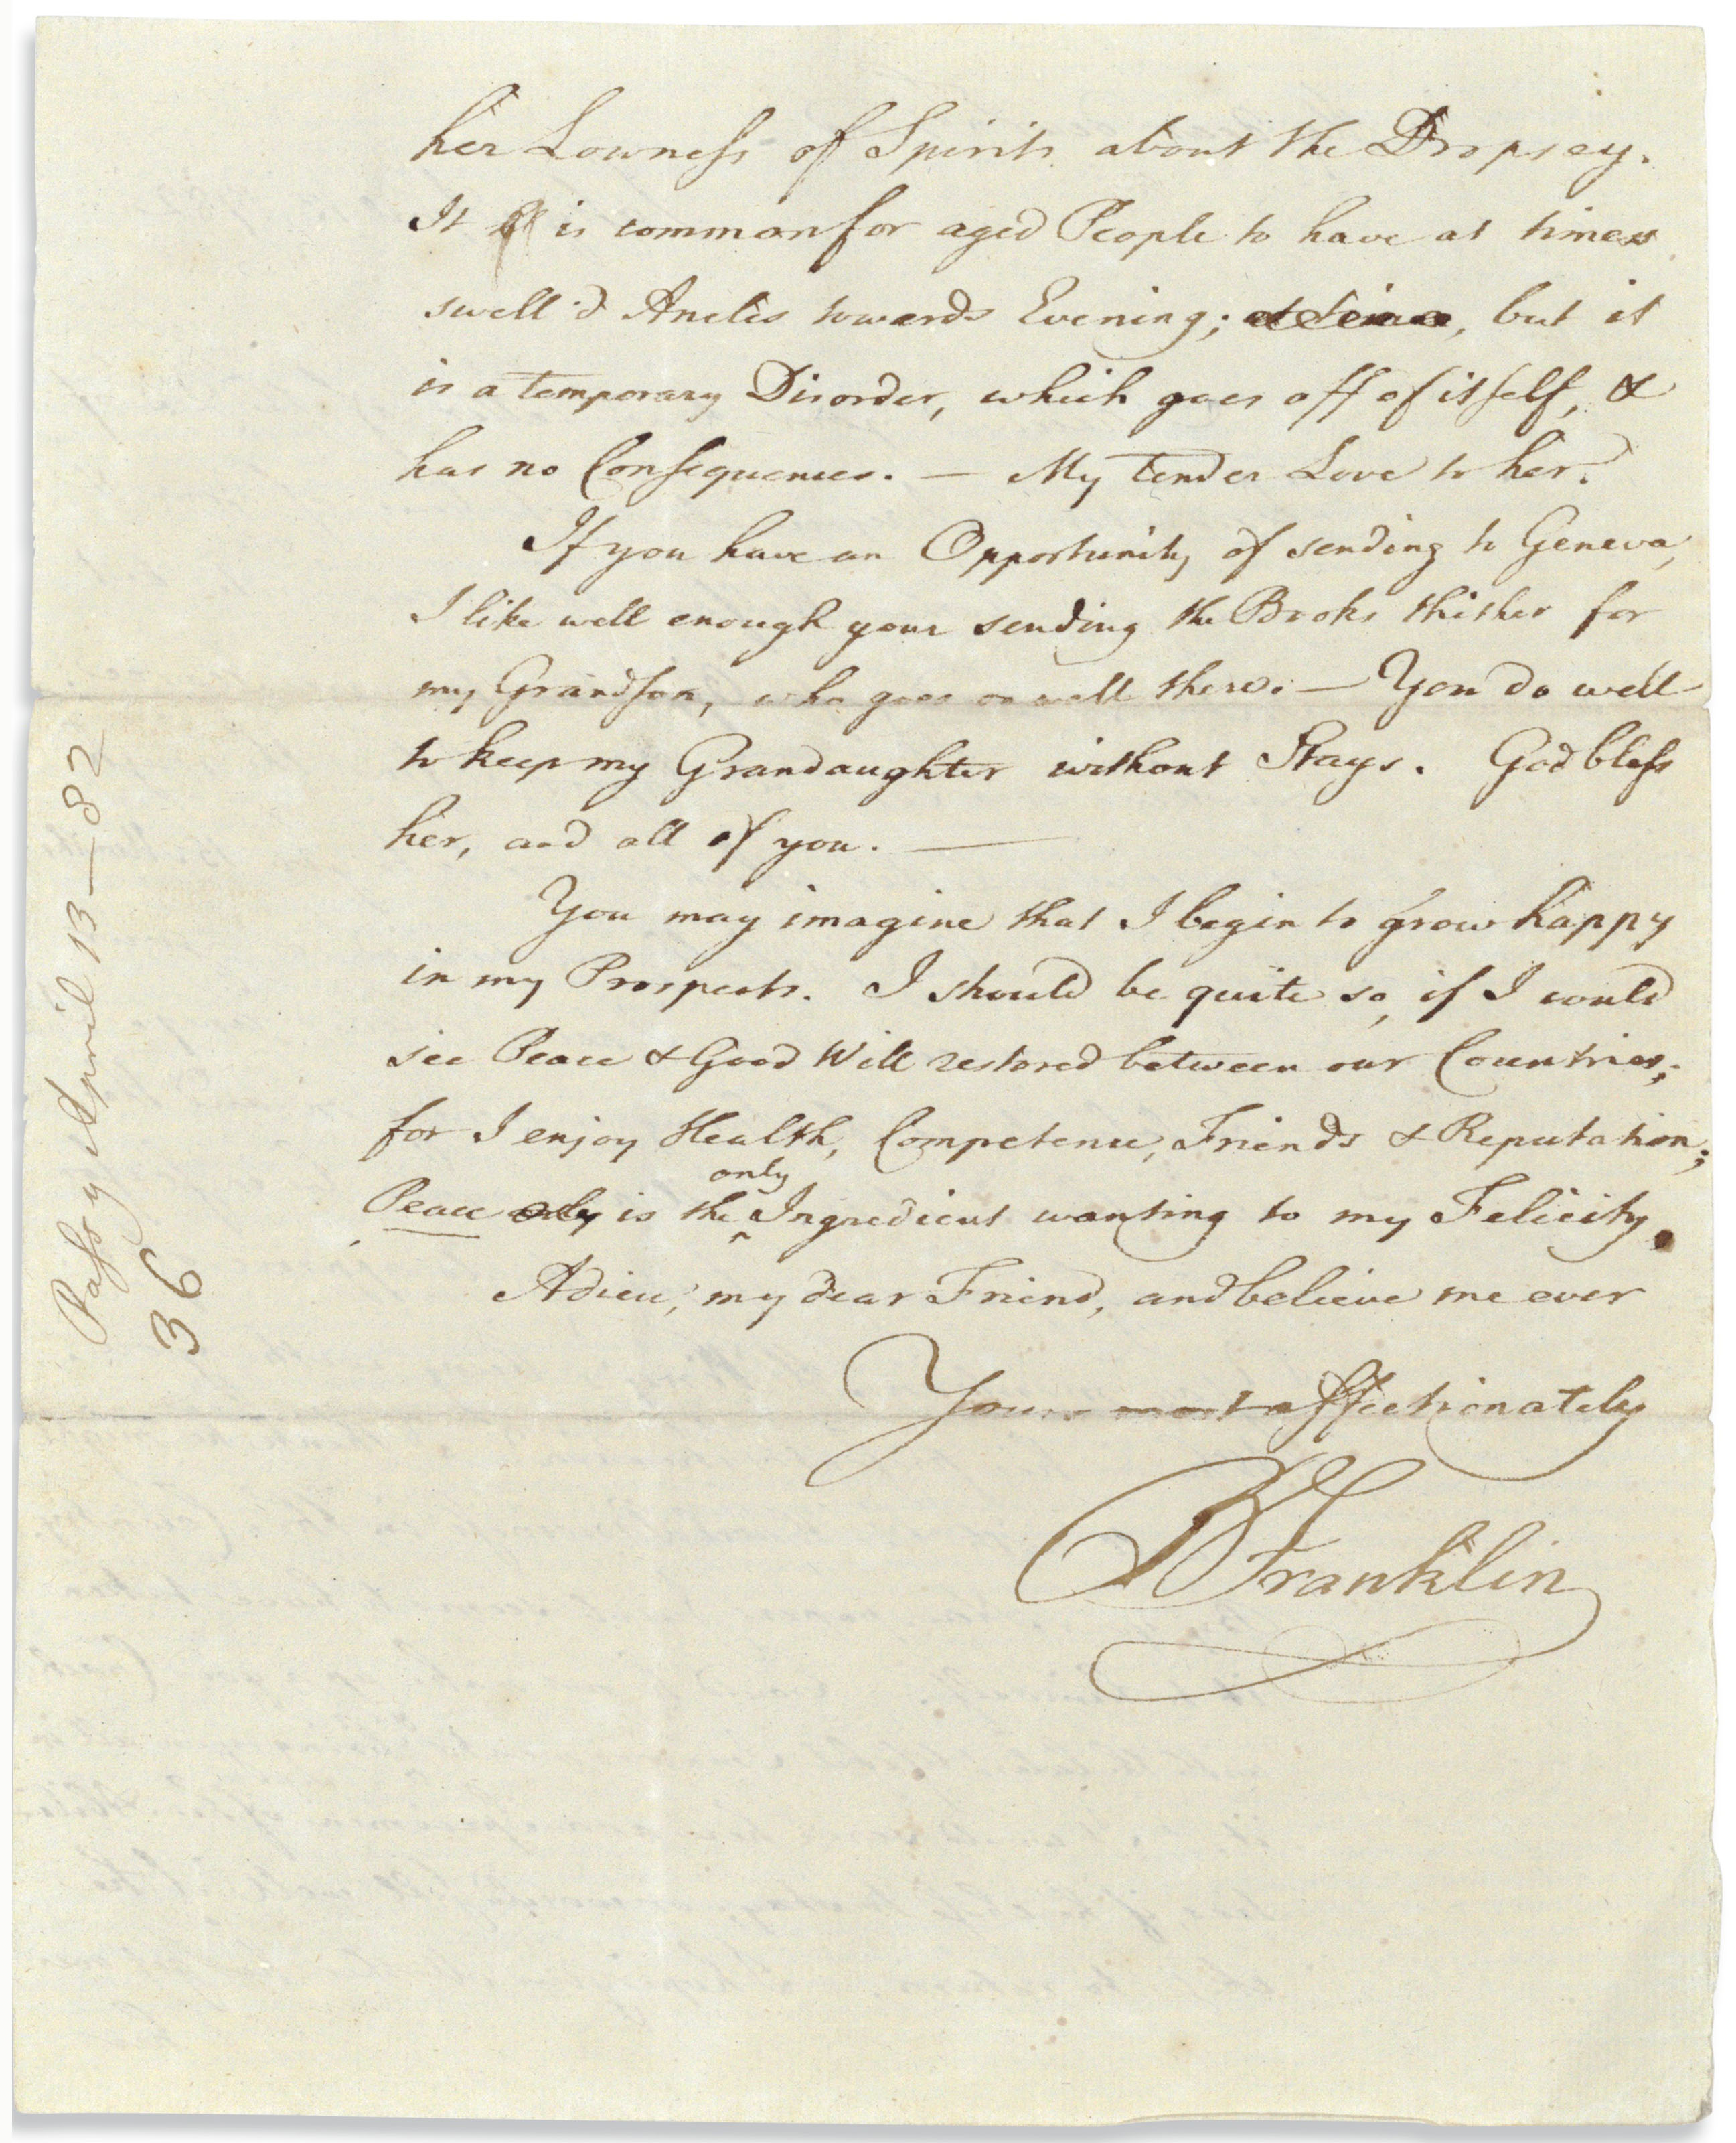 her Lowness of Spirits about the Dropsey.
It is common for aged People to have at times
swell'd Ancles towards Evening; at times, but it
is a temporary Disorder, which goes off of itself, &
has no Consequences. — My tender Love to her.
If you have an Opportunity of sending to Geneva,
I like well enough your sending the Books thither for
my Grandson, who goes on well there. — You do well
to keep my Grandaughter without Stays. God bless
her, and all of you. —
You may imagine that I begin to grow happy
in my Prospects. I should be quite so, if I could
see Peace & Good Will restored between our Countries;
for I enjoy Health, Competence, Friends & Reputation;
only
Peace only is the ‸ Ingredient wanting to my Felicity.
Adieu, my dear Friend, and believe me ever
Yours most affectionately
B Franklin
Passy April 13—82
36